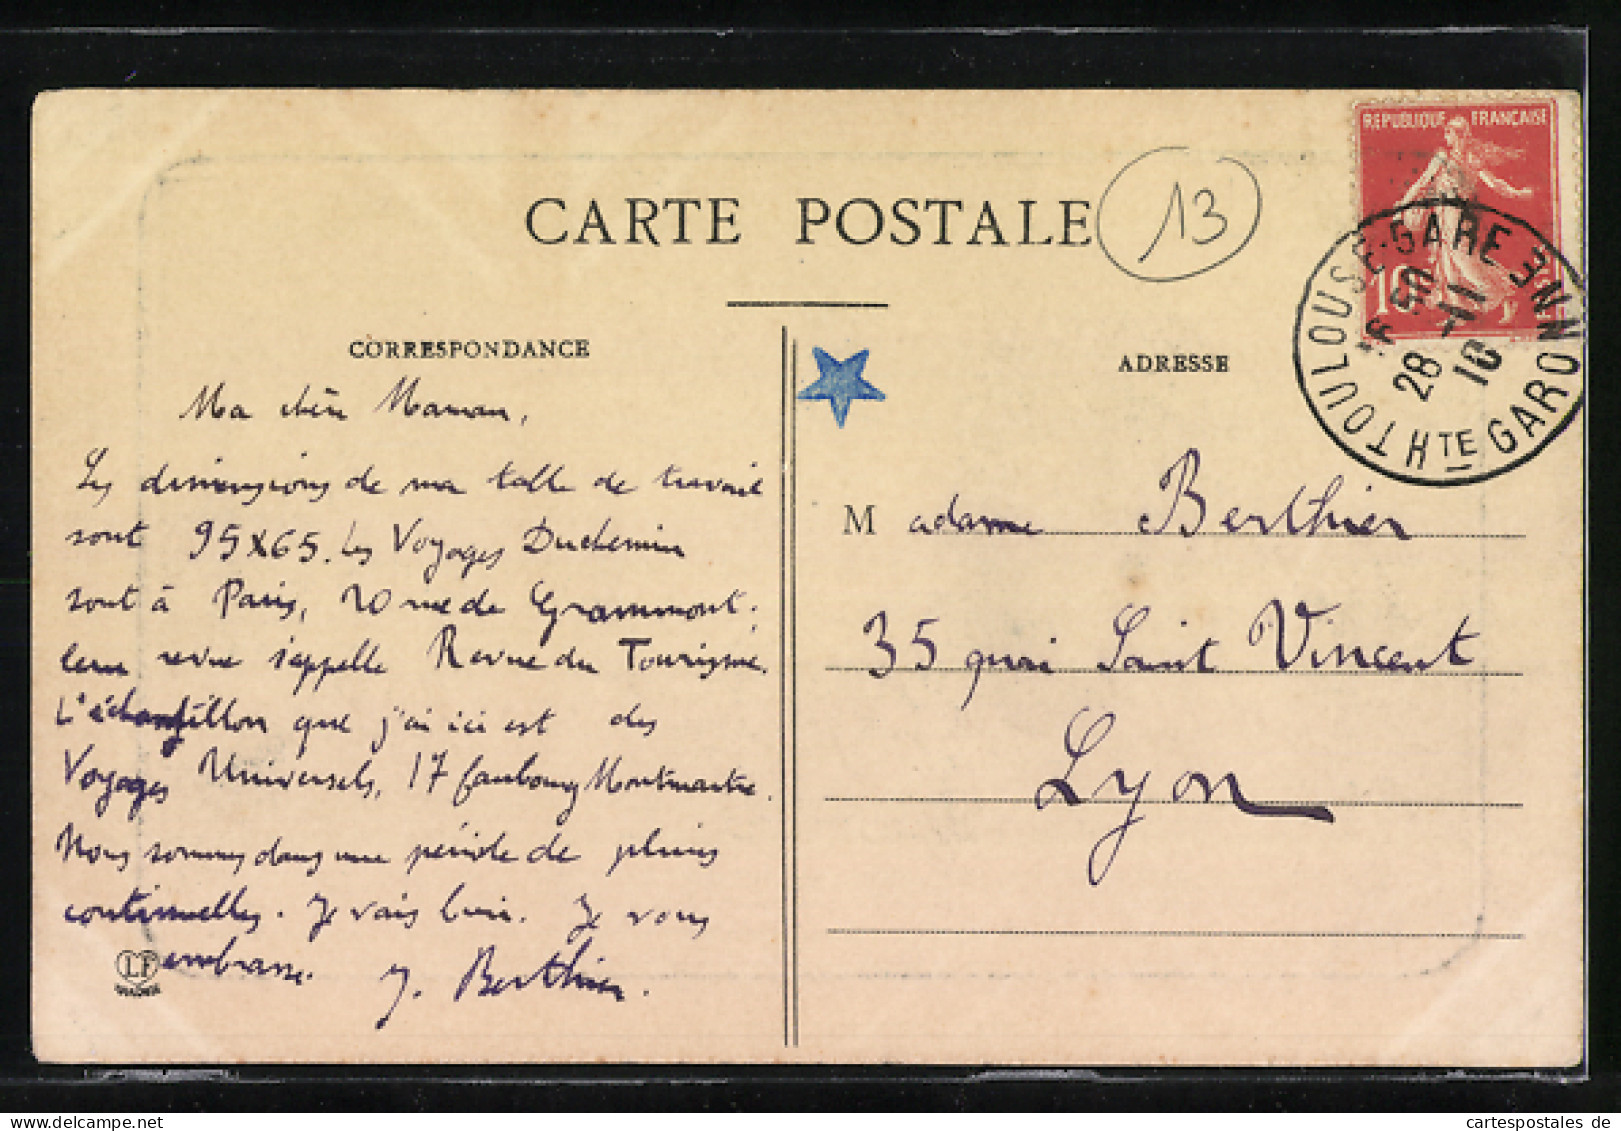 CARTE POSTALE
13
REPUBLIQUE FRANÇAISE
10
TOULOUSE-GARE
50
28 -11
10
HTE GARONNE
CORRESPONDANCE
Ma chère Maman,
Les dimensions de ma table de travail
sont 95x65. Les Voyages Duchemin
sont à Paris, 20 rue de Grammont;
leur revue s'appelle Revue du Tourisme.
L'échantillon que j'ai ici est des
Voyages Universels, 17 faubourg Montmartre.
Nous sommes dans une période de pluies
continuelles. Je vais bien. Je vous
embrasse. J. Berthier.
LF
ADRESSE
Madame Berthier
35 quai Saint Vincent
Lyon
cartespostales de